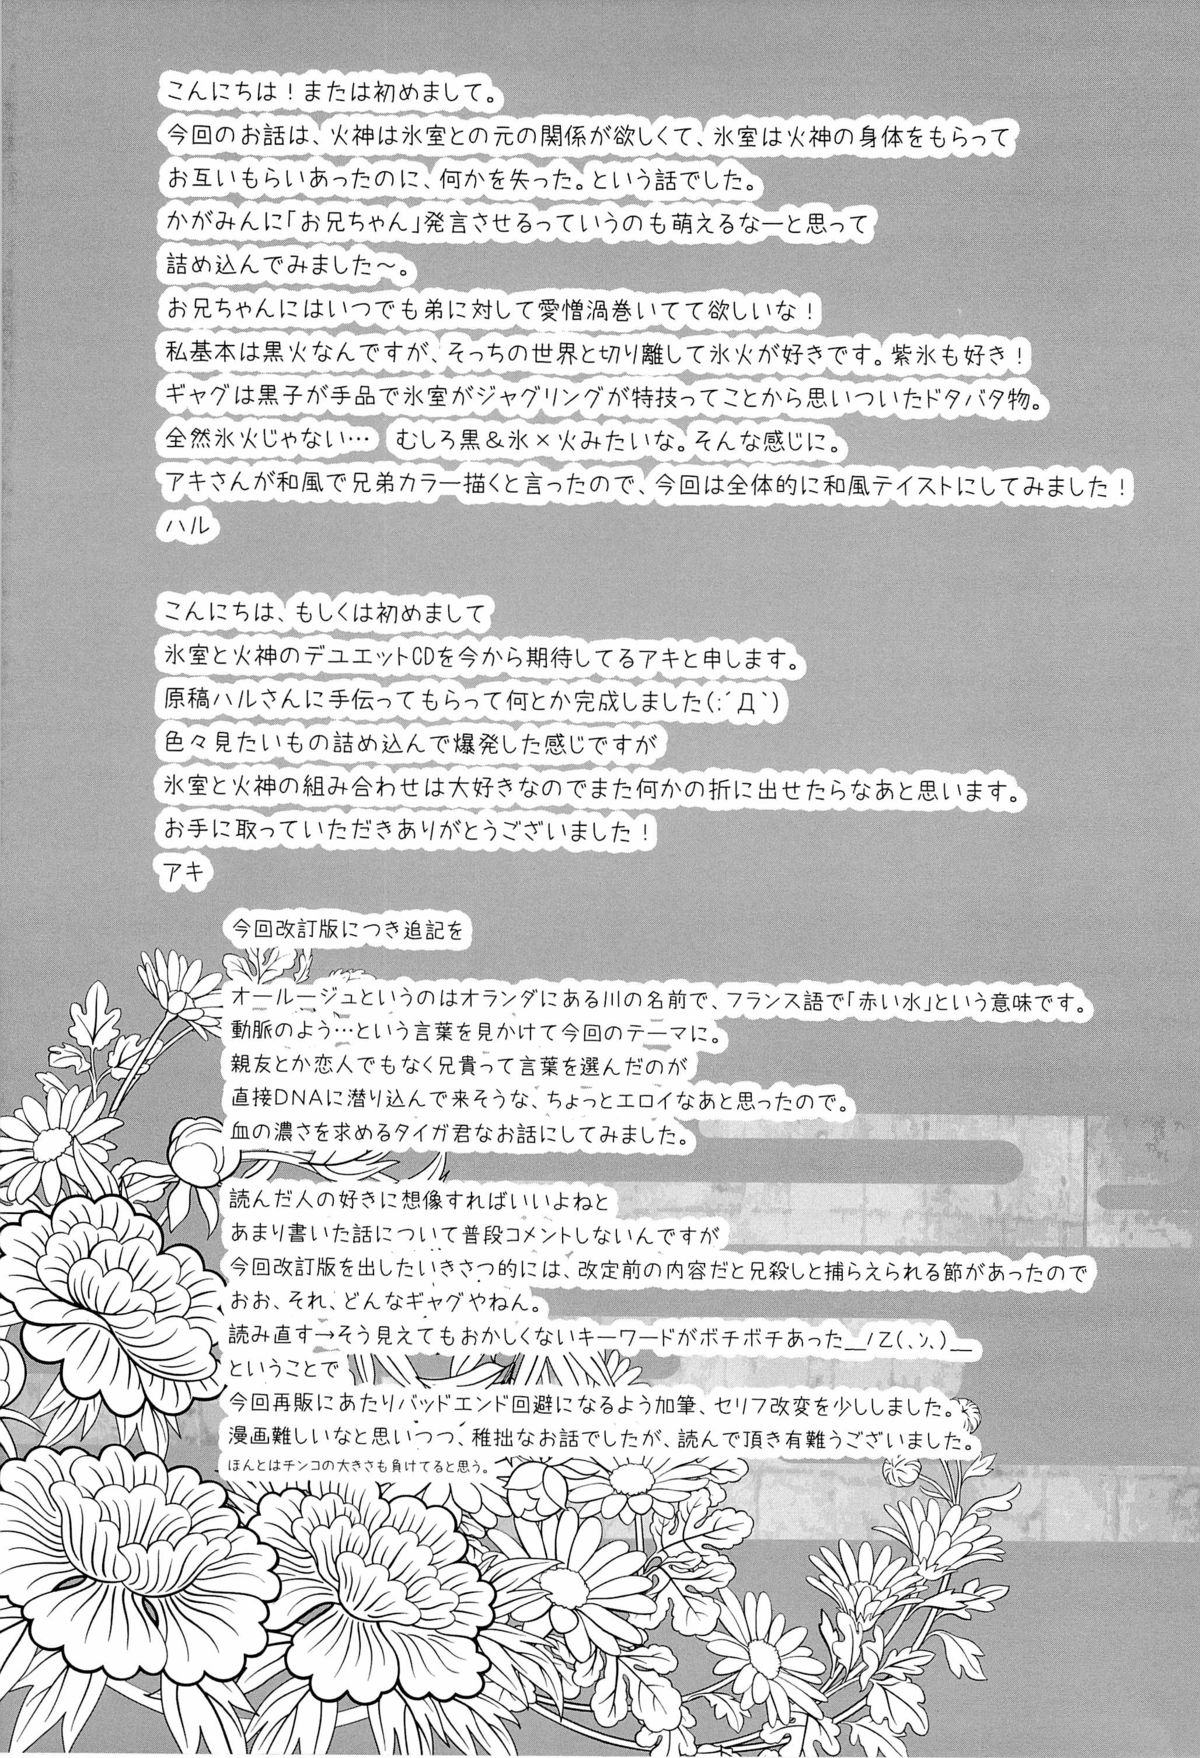 こんにちは！または初めまして。
今回のお話は、火神は氷室との元の関係が欲しくて、氷室は火神の身体をもらって
お互いもらいあったのに、何かを失った。という話でした。
かがみんに「お兄ちゃん」発言させるっていうのも萌えるなーと思って
詰め込んでみました～。
お兄ちゃんにはいつでも弟に対して愛憎渦巻いてて欲しいな！
私基本は黒火なんですが、そっちの世界と切り離して氷火が好きです。紫氷も好き！
ギャグは黒子が手品で氷室がジャグリングが特技ってことから思いついたドタバタ物。
全然氷火じゃない… むしろ黒＆氷×火みたいな。そんな感じに。
アキさんが和風で兄弟カラー描くと言ったので、今回は全体的に和風テイストにしてみました！
ハル
こんにちは、もしくは初めまして
氷室と火神のデュエットCDを今から期待してるアキと申します。
原稿ハルさんに手伝ってもらって何とか完成しました(;´Д｀)
色々見たいもの詰め込んで爆発した感じですが
氷室と火神の組み合わせは大好きなのでまた何かの折に出せたらなあと思います。
お手に取っていただきありがとうございました！
アキ
今回改訂版につき追記を
オールージュというのはオランダにある川の名前で、フランス語で「赤い水」という意味です。
動脈のよう…という言葉を見かけて今回のテーマに。
親友とか恋人でもなく兄貴って言葉を選んだのが
直接DNAに潜り込んで来そうな、ちょっとエロイなあと思ったので。
血の濃さを求めるタイガ君なお話にしてみました。
読んだ人の好きに想像すればいいよねと
あまり書いた話について普段コメントしないんですが
今回改訂版を出したいきさつ的には、改定前の内容だと兄殺しと捕らえられる節があったので
おお、それ、どんなギャグやねん。
読み直す→そう見えてもおかしくないキーワードがボチボチあった＿ﾉ乙(､ﾝ､)＿
ということで
今回再販にあたりバッドエンド回避になるよう加筆、セリフ改変を少ししました。
漫画難しいなと思いつつ、稚拙なお話でしたが、読んで頂き有難うございました。
ほんとはチンコの大きさも負けてると思う。